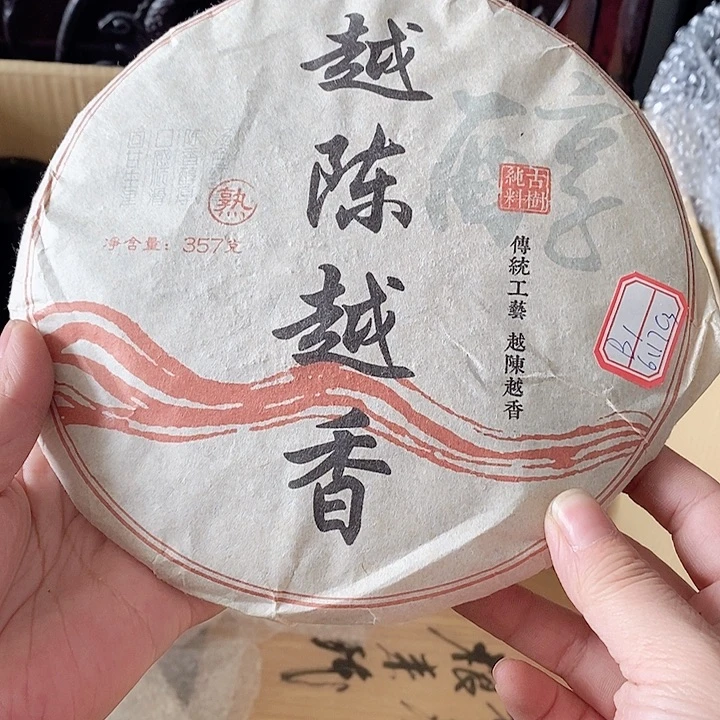 越陈越香
醇
古樹
純料
傳統工藝 越陳越香
熟
净含量: 357克
B1